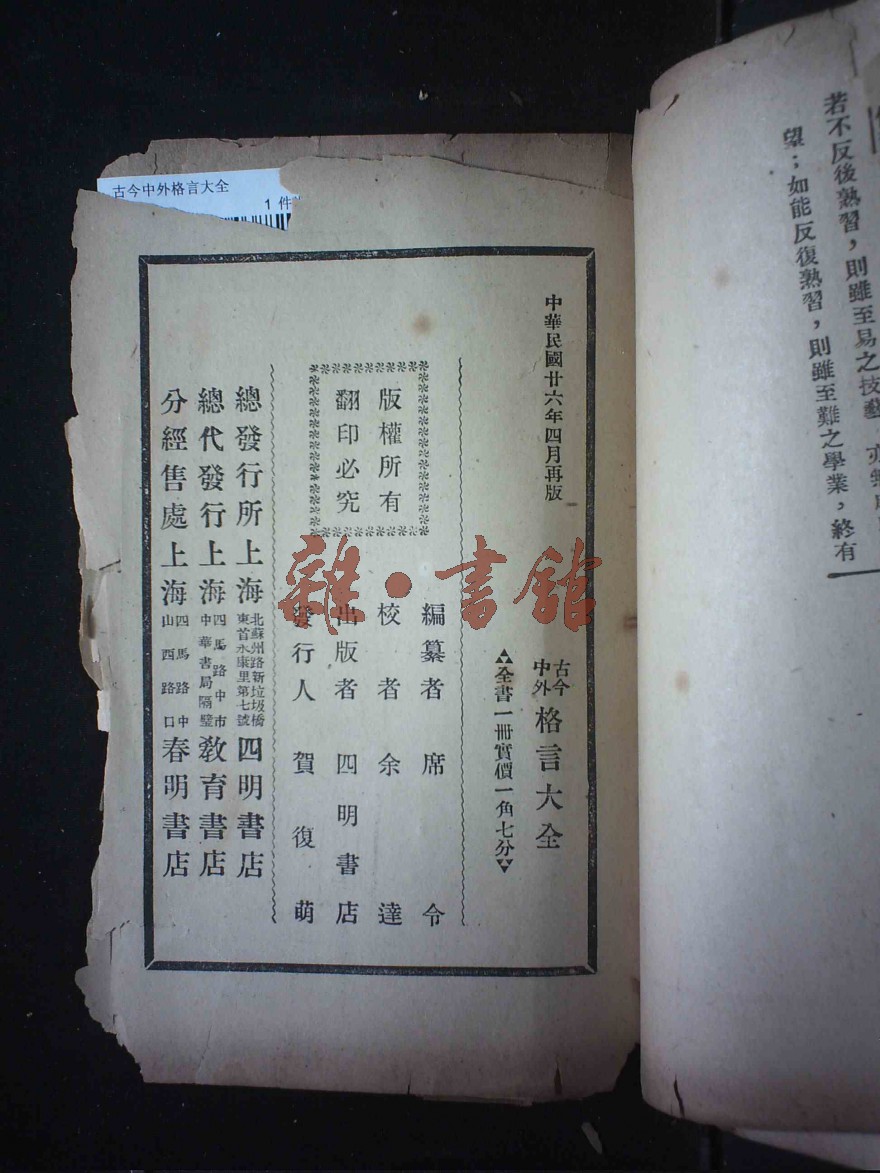 若不反後熟習，則雖至易之技藝
望；如能反復熟習，則雖至難之學業，終有
古今中外格言大全
1 件
中華民國廿六年四月再版
古今中外格言大全
全書一冊實價一角七分
版權所有
翻印必究
編纂者 席令
校者 余達
出版者 四明書店
發行人 賀復萌
總發行所 上海 北蘇州路新垃圾橋東首永康里第七號 四明書店
總代發行 上海 四馬路中市中華書局隔壁 教育書店
分經售處 上海 四馬路中山西路口 春明書店
雜·書館